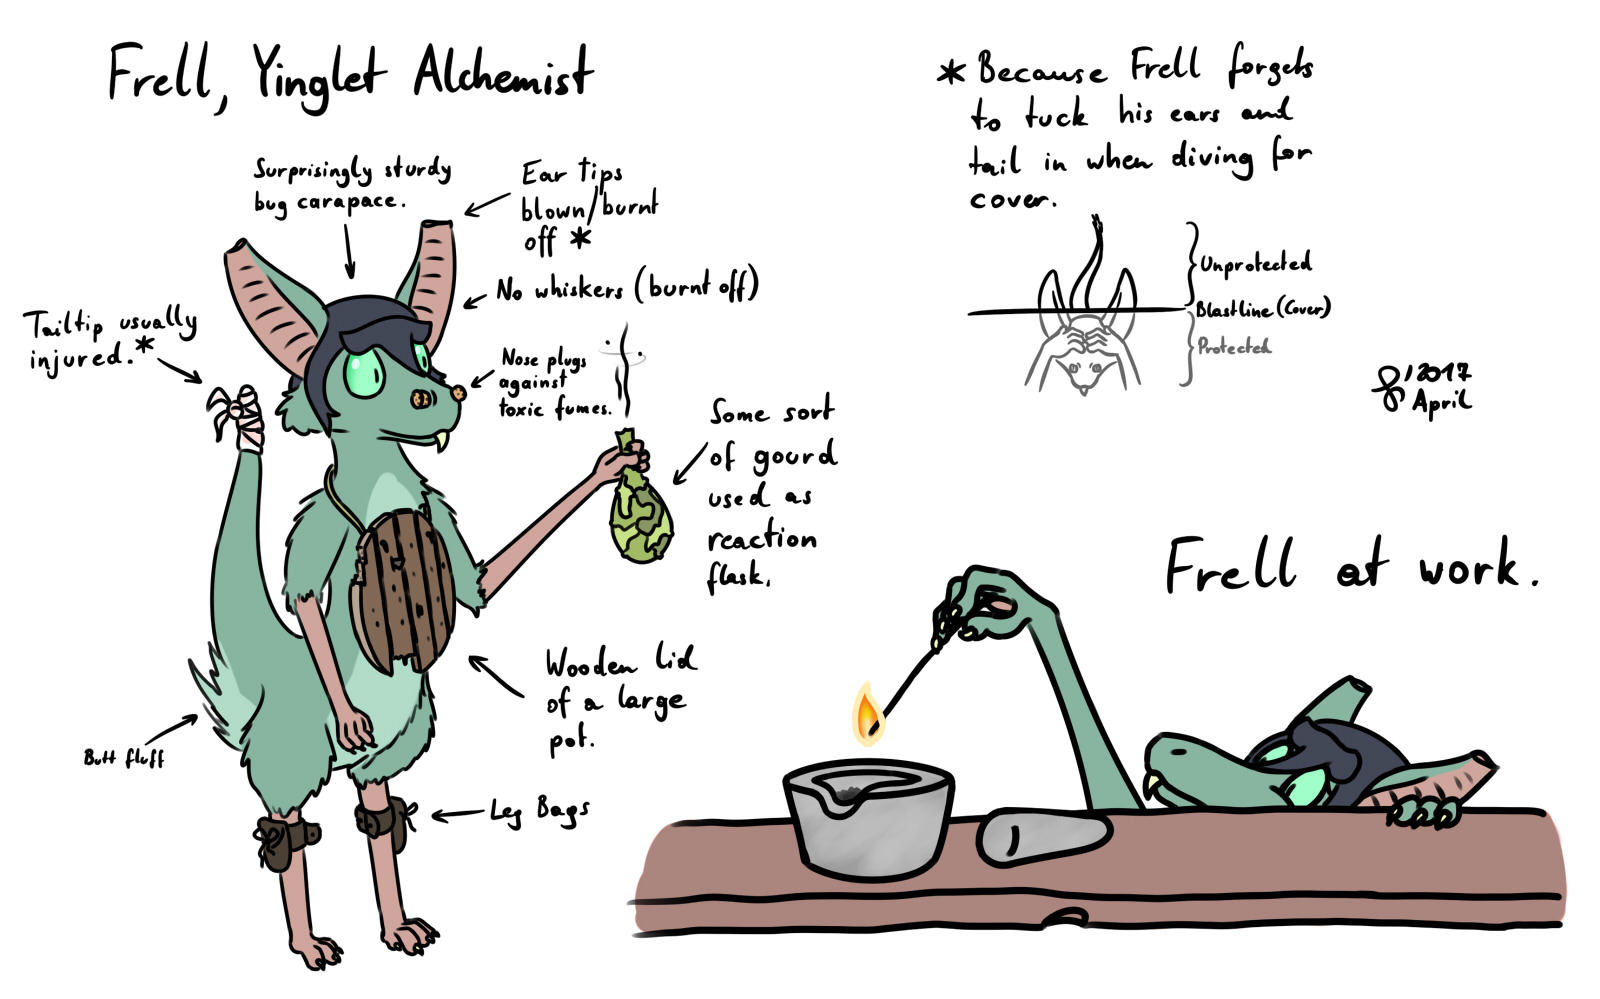 Frell, Yinglet Alchemist
Surprisingly sturdy
bug carapace.
Ear tips
blown/burnt
off *
No whiskers (burnt off)
Tailtip usually
injured.*
Nose plugs
against
toxic fumes.
Some sort
of gourd
used as
reaction
flask.
Wooden lid
of a large
pot.
Butt fluff
Leg Bags
* Because Frell forgets
to tuck his ears and
tail in when diving for
cover.
Unprotected
Blastline (Cover)
Protected
'2017
April
Frell at work.